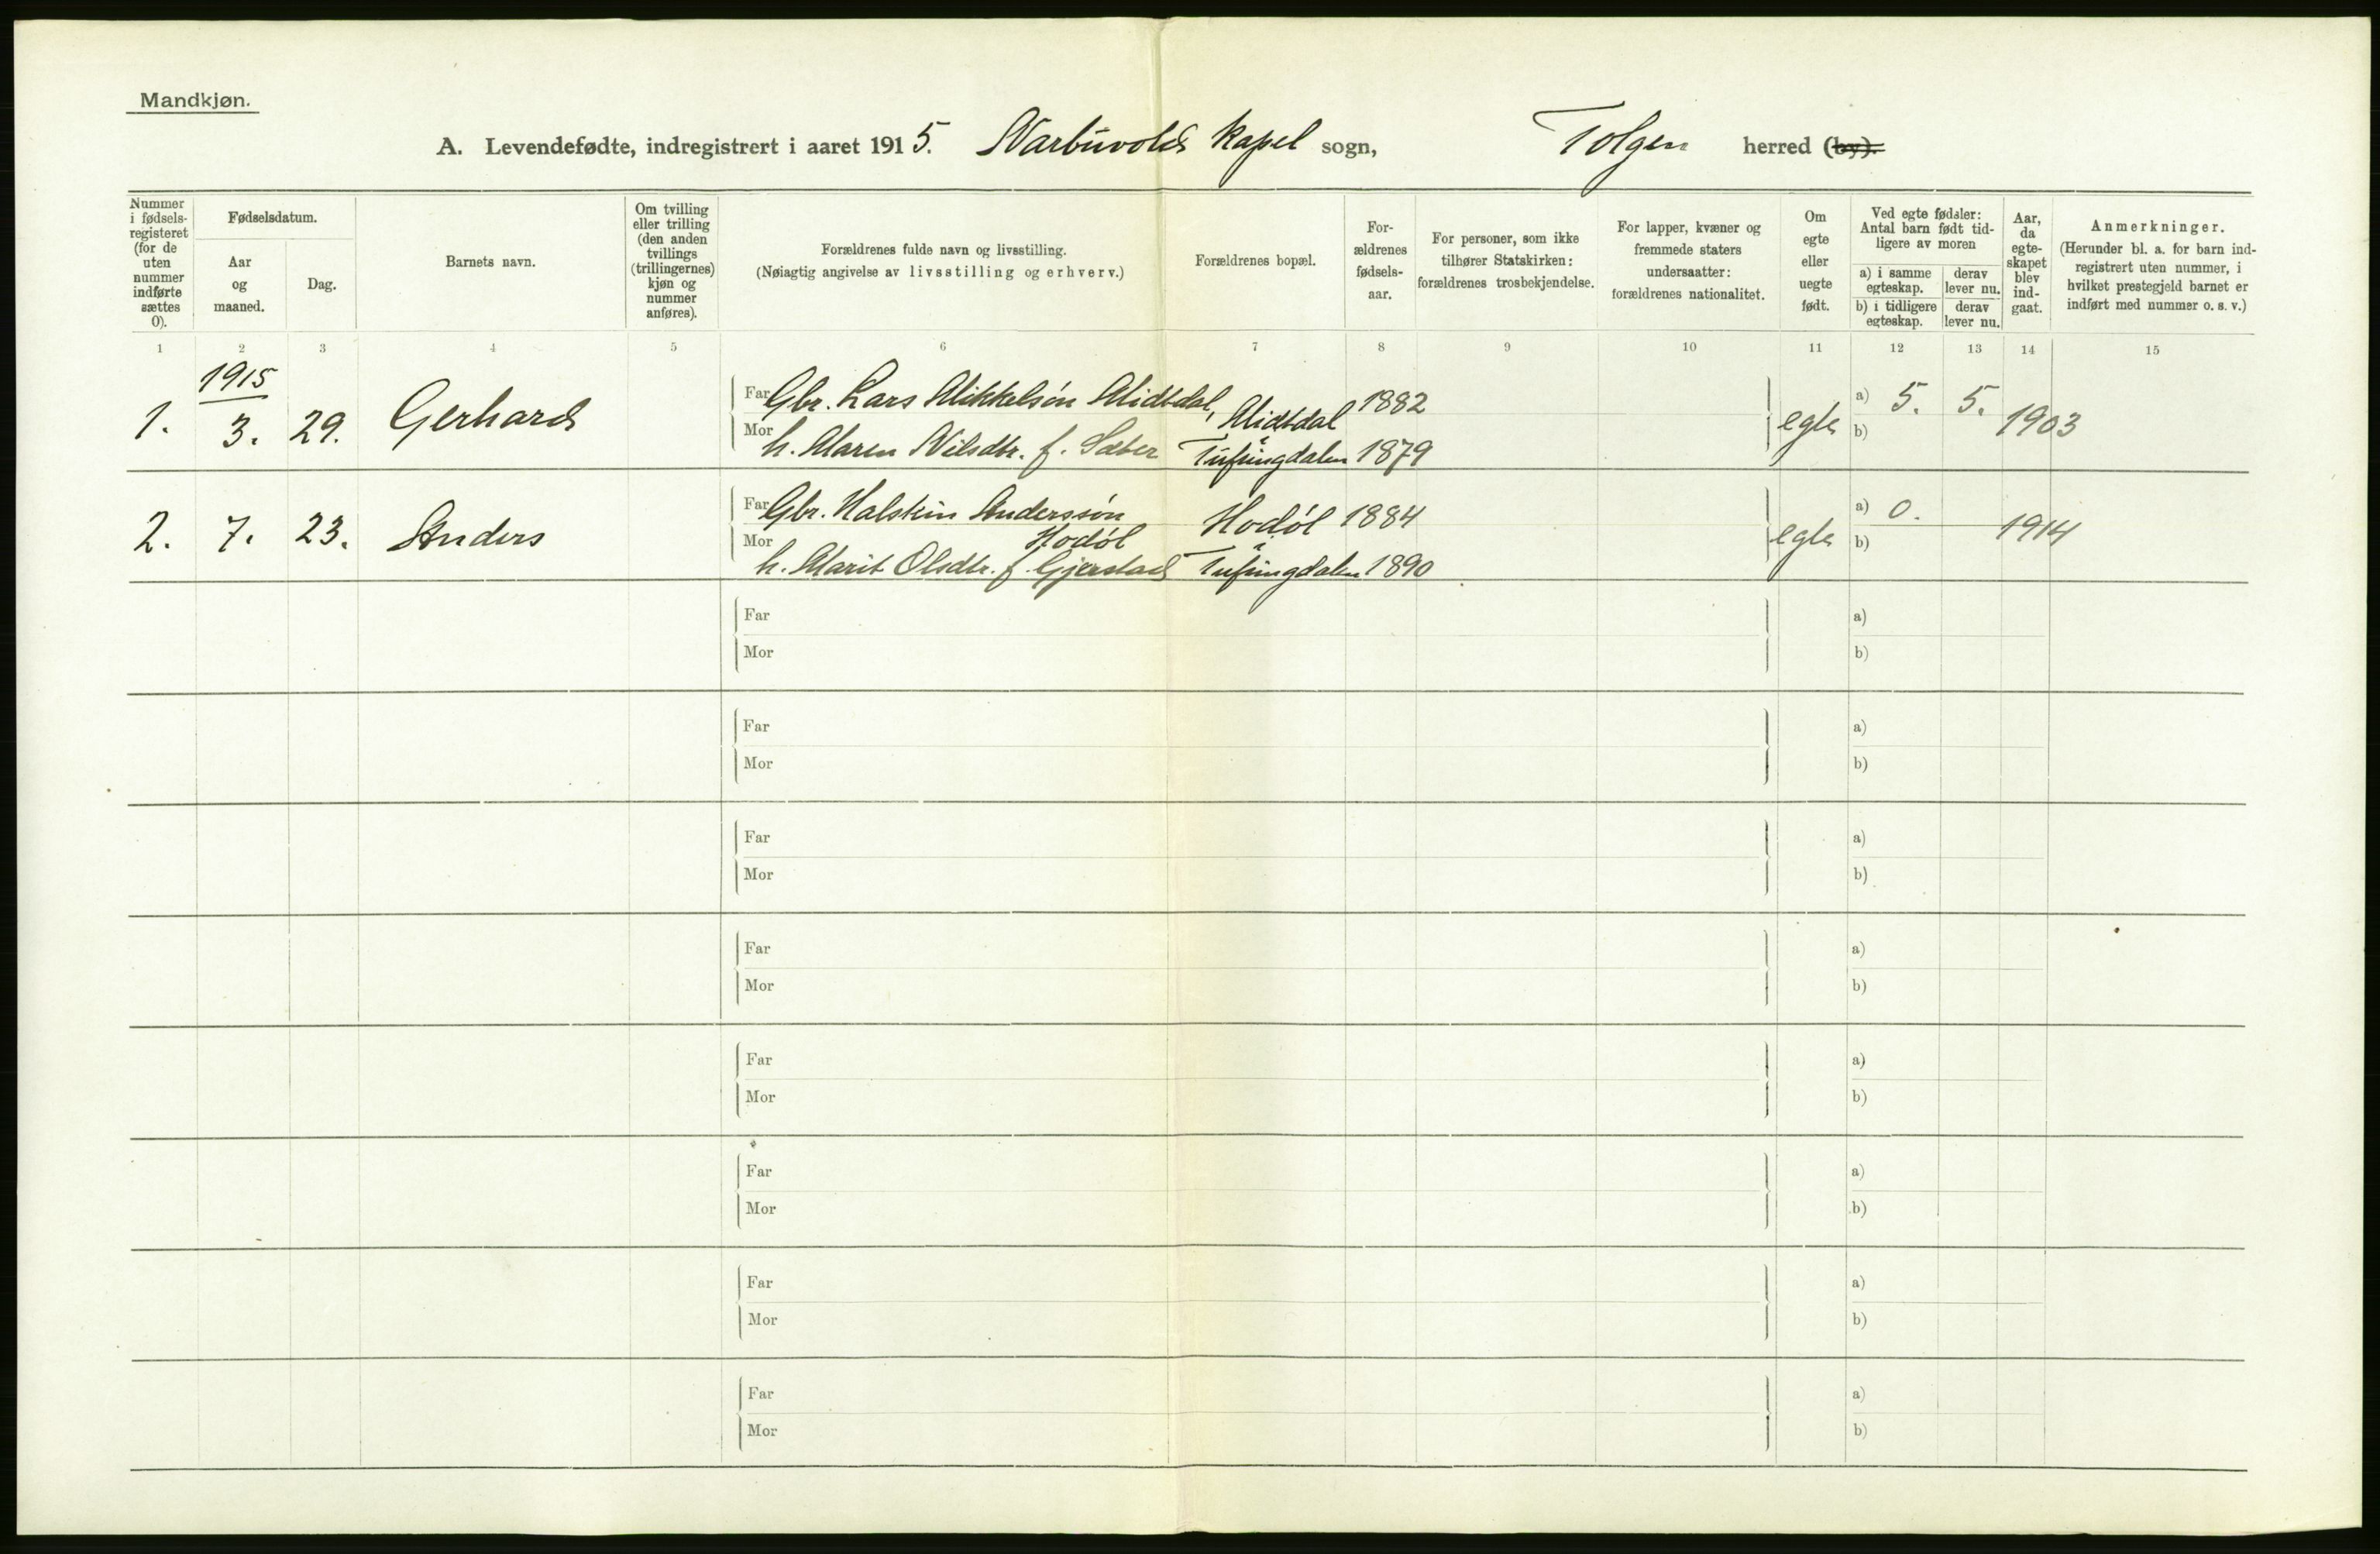 Mandkjøn.
A. Levendefødte, indregistrert i aaret 1915. Narbuvolds Kapel sogn, Tolgen herred (by).
Nummer i fødselsregisteret (for de uten nummer indførte sættes 0).
Fødselsdatum.
Aar og maaned.
Dag.
Barnets navn.
Om tvilling eller trilling (den anden tvillings (trillingernes) kjøn og nummer anføres).
Forældrenes fulde navn og livsstilling.
(Nøiagtig angivelse av livsstilling og erhverv.)
Forældrenes bopæl.
Forældrenes fødselsaar.
For personer, som ikke tilhører Statskirken: forældrenes trosbekjendelse.
For lapper, kvæner og fremmede staters undersaatter: forældrenes nationalitet.
Om egte eller uegte født.
Ved egte fødsler: Antal barn født tidligere av moren
a) i samme egteskap.
derav lever nu.
b) i tidligere egteskap.
derav lever nu.
Aar, da egteskapet blev indgaat.
Anmerkninger.
(Herunder bl. a. for barn indregistrert uten nummer, i hvilket prestegjeld barnet er indført med nummer o. s. v.)
1 2 3 4 5 6 7 8 9 10 11 12 13 14 15
1915
1. 3. 29. Gerhard
Far Gbr. Lars Mikkelsøn Midtdal, Midtdal 1882
Mor h. Maren Nilsdtr. f. Sæter Tufsingdalen 1879
egte a) 5. 5. 1903
b)
2. 7. 23. Anders
Far Gbr. Halstein Anderssøn Hodøl Hodøl 1884
Mor h. Marit Olsdtr. f. Gjerstad i Tufsingdalen 1890
egte a) 0. 1914
b)
Far a)
Mor b)
Far a)
Mor b)
Far a)
Mor b)
Far a)
Mor b)
Far a)
Mor b)
Far a)
Mor b)
Far a)
Mor b)
Far a)
Mor b)